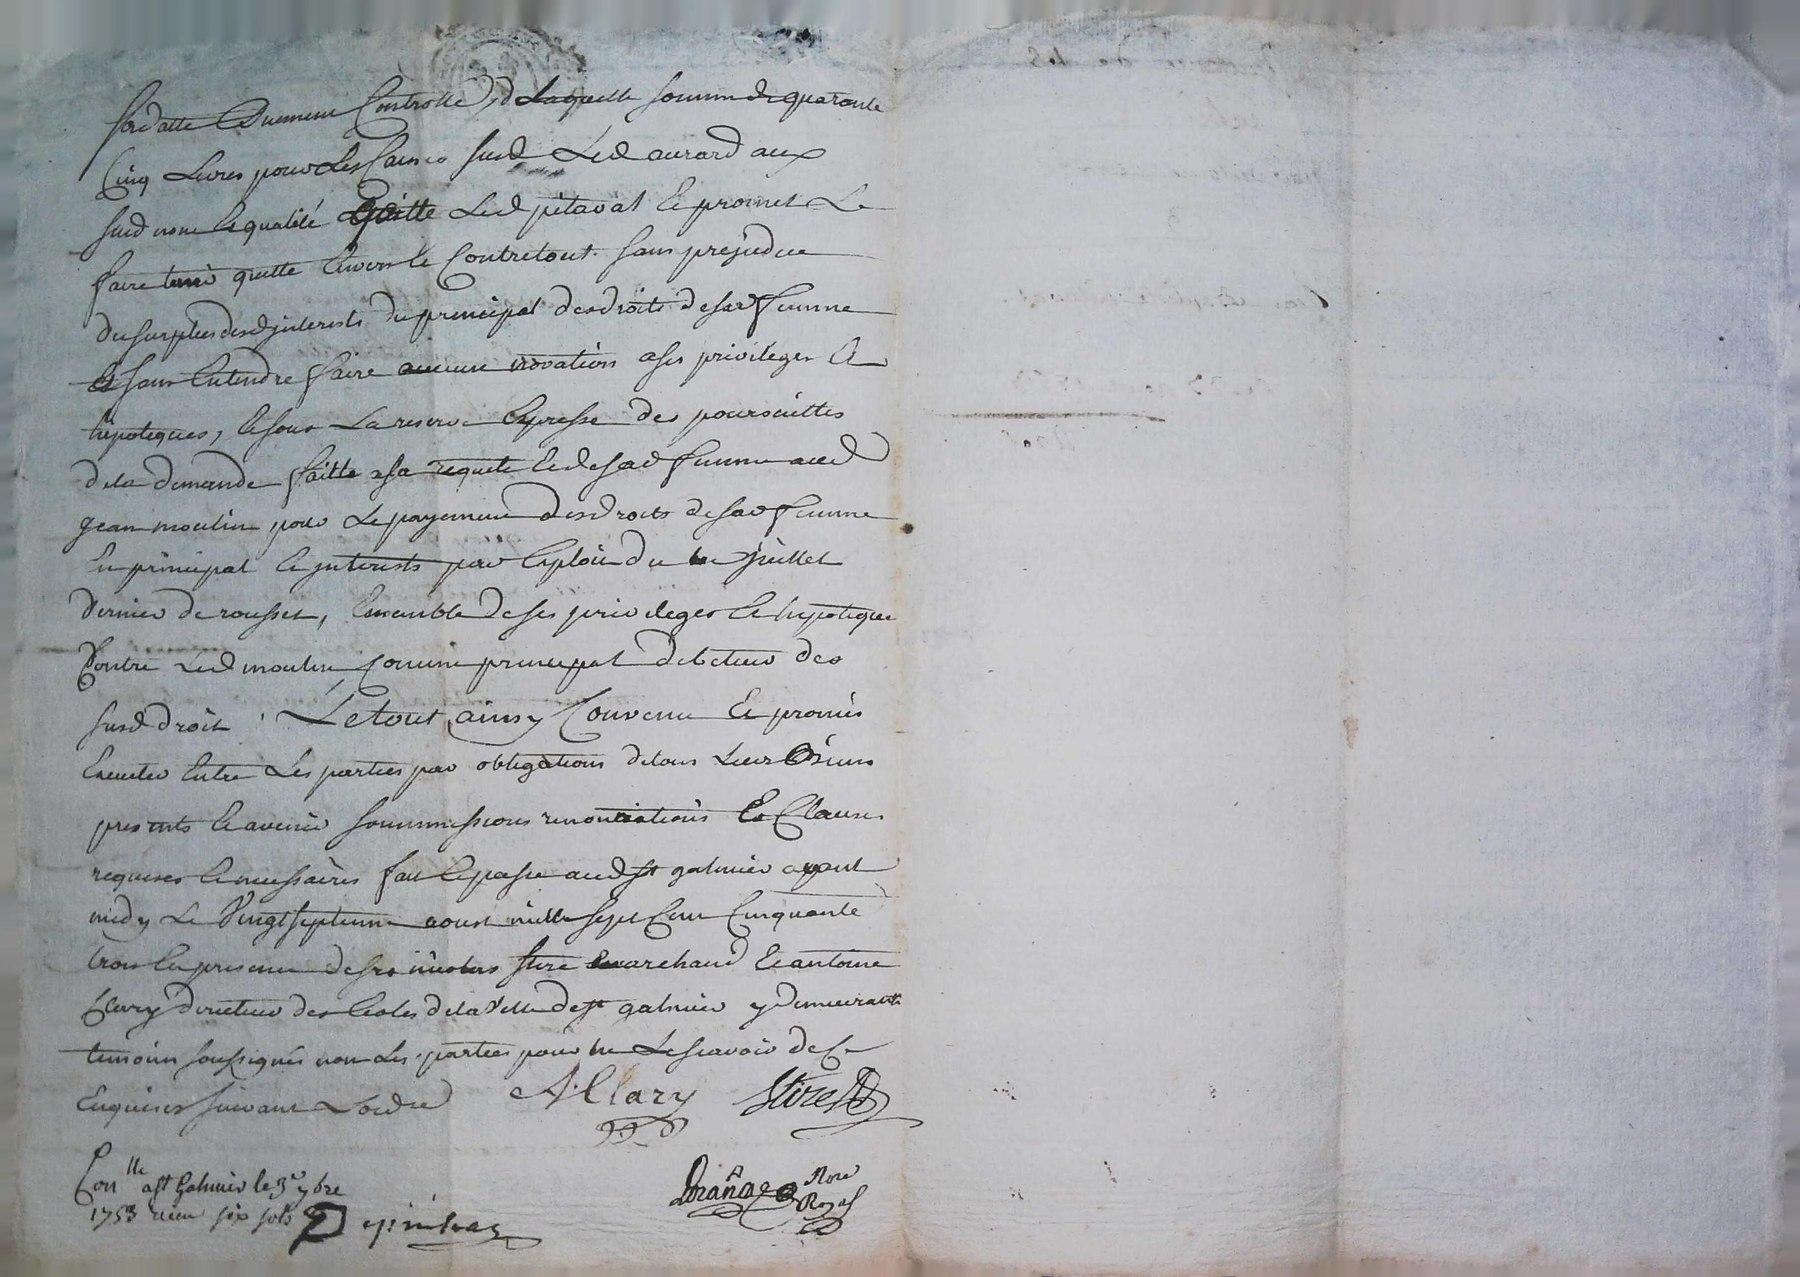 sordatte Duement Controllé, de Laquelle somme de quarante
Cinq Livres pour Les Causes susd Led aurard aux
susd nom & qualité Quitte Led pitaval & promet Le
faire tenir quitte Envers & Contre tout sans prejudice
du surplus desd jnterests du principal des droits de sad femme
& sans Entendre faire aucune novation a ses privileges &
hipoteques, & sous La reserve Expresse des poursuittes
de la demande faitte a sa requete & de sad femme aud
jean moulin pour Le payement desd droits de sad femme
En principal & jnterests par Exploit du juillet
dernier de rousset, Ensemble de ses privileges & hypoteques
Contre Led moulin Comme principal debiteur des
susd droit Le tout ainsy Convenu & promis
Executer Entre Les parties par obligations de tous Leurs Biens
presents & avenir soummissions renontiations & Clauses
requises & necessaires fait & passé aud st galmier avant
midy Le Vingt septieme aoust mille sept Cent Cinquante
trois En presence de sr nicolas stire marchand & antoine
Clary directeur des Ecoles de la Ville de st galmier y demeurants
temoins soussignés non Les parties pour ne Le scavoir de Ce
Enquises suivant Lordre
A. Clary Stire
Con.lle a st Galmier le 3e 7bre
1753 recu six sols
Nore
Royal